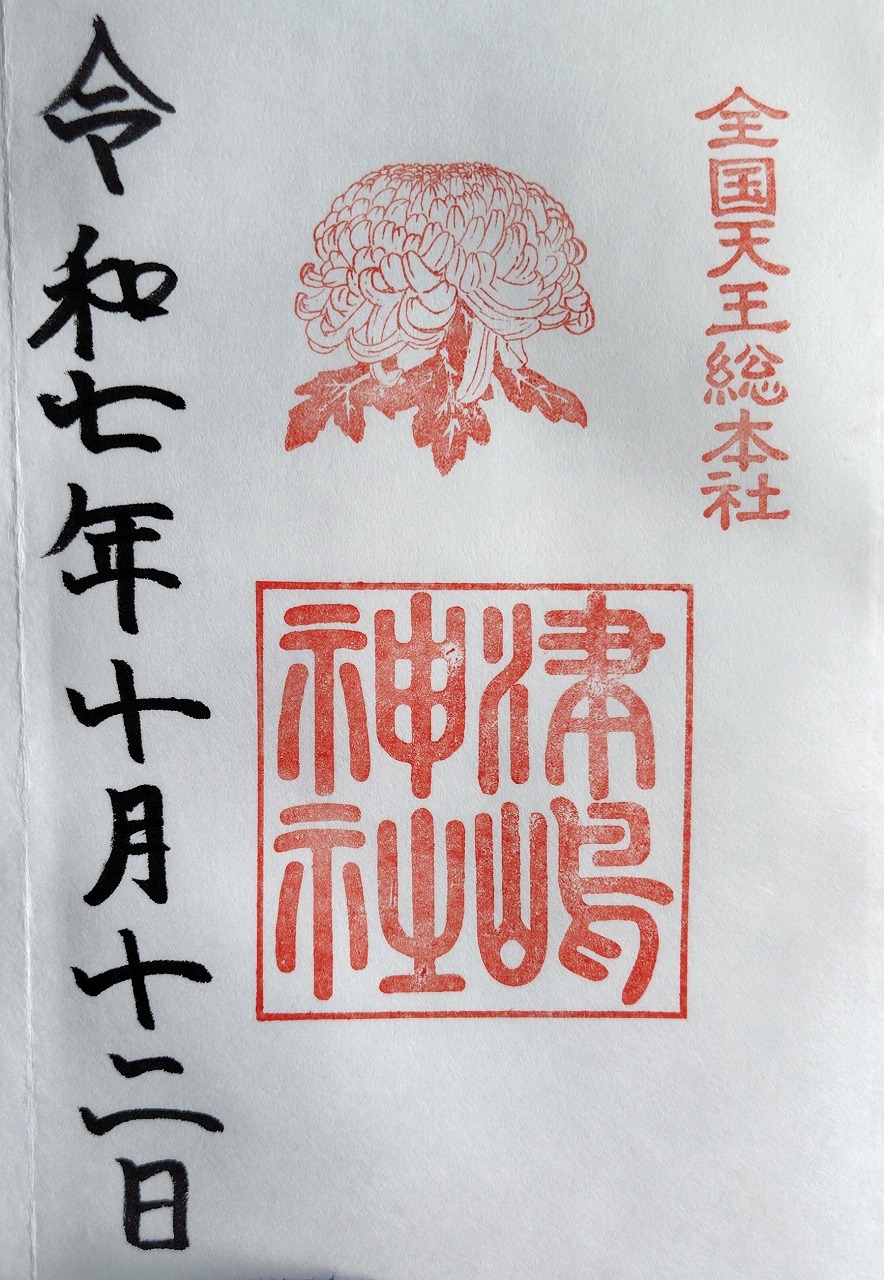 全国天王総本社
津嶋
神社
令和七年十月十二日